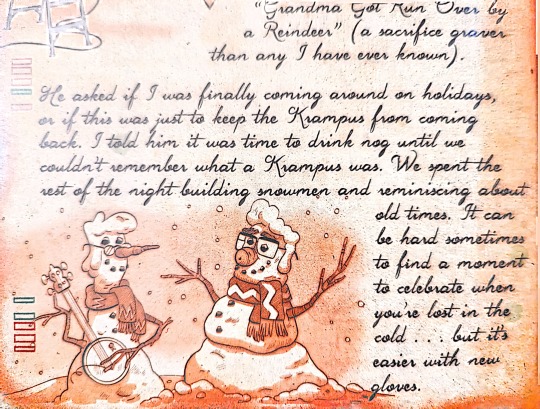 "Grandma Got Run Over by
a Reindeer" (a sacrifice graver
than any I have ever known).
He asked if I was finally coming around on holidays,
or if this was just to keep the Krampus from coming
back. I told him it was time to drink nog until we
couldn't remember what a Krampus was. We spent the
rest of the night building snowmen and reminiscing about
old times. It can
be hard sometimes
to find a moment
to celebrate when
you're lost in the
cold . . . but it's
easier with new
gloves.